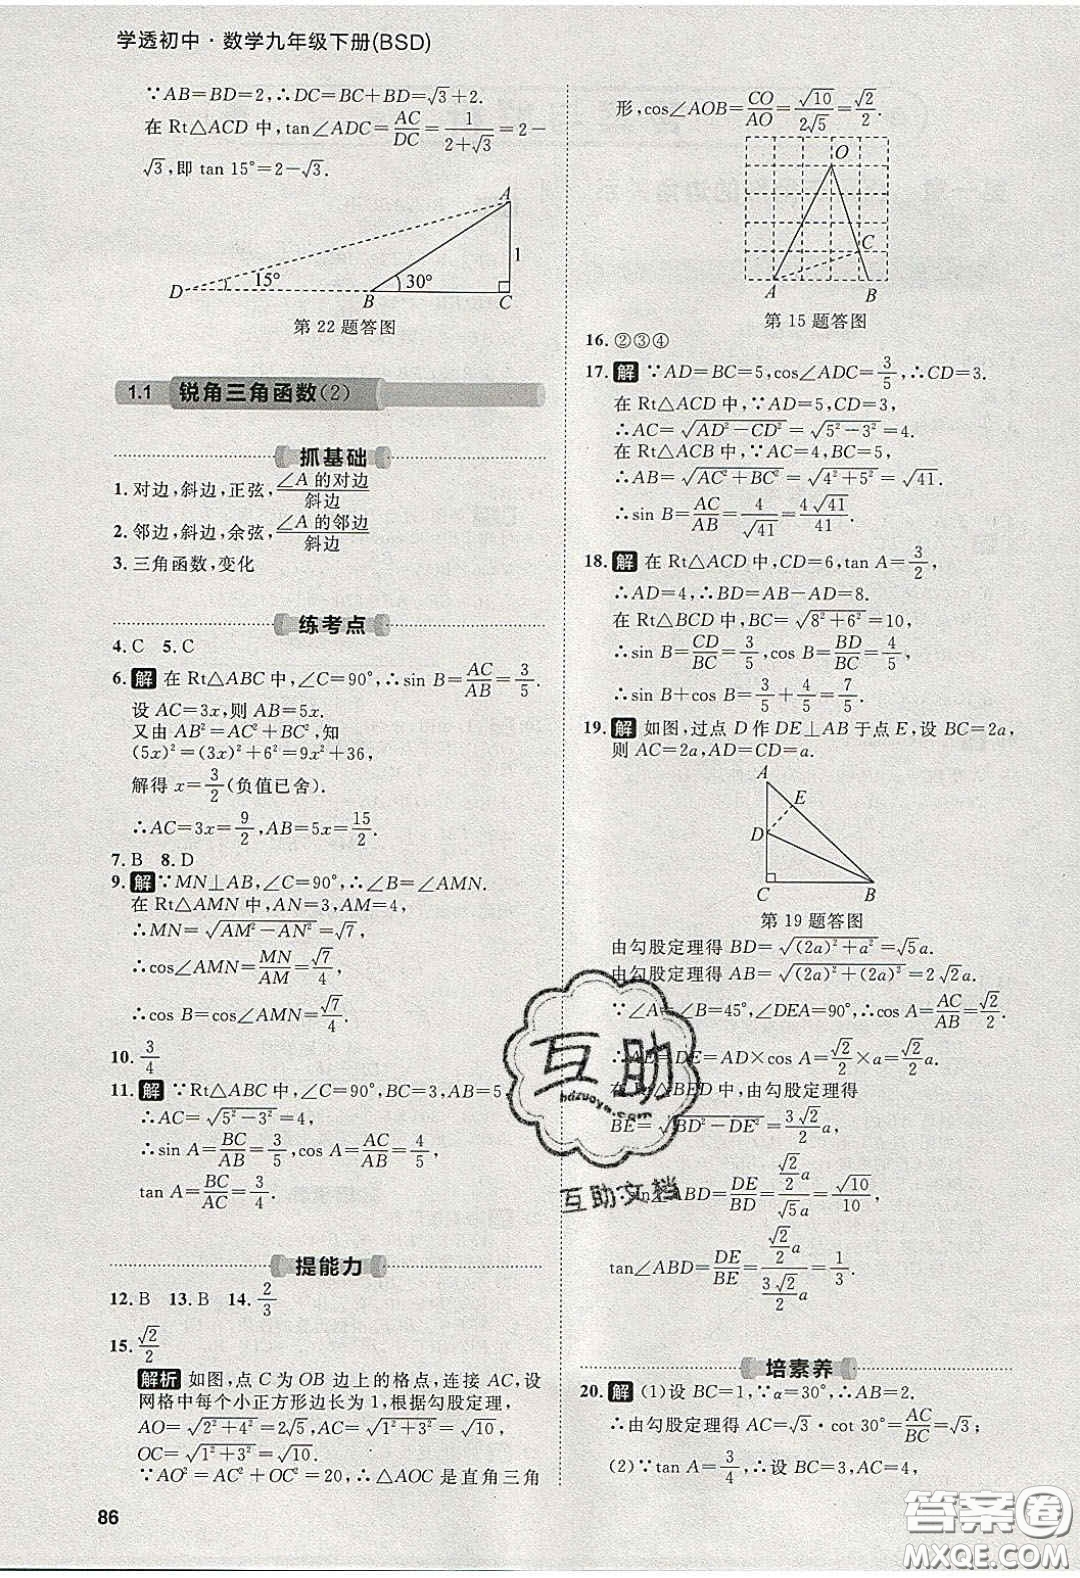 学透初中·数学九年级下册(BSD)
∵AB=BD=2,∴DC=BC+BD=√3+2.
在 Rt△ACD 中,tan∠ADC=AC/DC=1/(2+√3)=2-
√3,即 tan 15°=2-√3.
A
15°
30°
1
D
B
C
第 22 题答图
1.1 锐角三角函数(2)
抓基础
1. 对边,斜边,正弦,∠A 的对边/斜边
2. 邻边,斜边,余弦,∠A 的邻边/斜边
3. 三角函数,变化
练考点
4. C 5. C
6. 解 在 Rt△ABC 中,∠C=90°,∴sin B=AC/AB=3/5.
设 AC=3x,则 AB=5x.
又由 AB²=AC²+BC²,知
(5x)²=(3x)²+6²=9x²+36,
解得 x=3/2(负值已舍).
∴AC=3x=9/2,AB=5x=15/2.
7. B 8. D
9. 解 ∵MN⊥AB,∠C=90°,∴∠B=∠AMN.
在 Rt△AMN 中,AN=3,AM=4,
∴MN=√(AM²-AN²)=√7,
∴cos∠AMN=MN/AM=√7/4,
∴cos B=cos∠AMN=√7/4.
10. 3/4
11. 解 ∵Rt△ABC 中,∠C=90°,BC=3,AB=5,
∴AC=√(5²-3²)=4,
∴sin A=BC/AB=3/5,cos A=AC/AB=4/5,
tan A=BC/AC=3/4.
提能力
12. B 13. B 14. 2/3
15. √2/2
解析 如图,点 C 为 OB 边上的格点,连接 AC,设
网格中每个小正方形边长为 1,根据勾股定理,
AO=√(2²+4²)=2√5,AC=√(1²+3²)=√10,
OC=√(1²+3²)=√10.
∵AO²=AC²+OC²=20,∴△AOC 是直角三角
86
形,cos∠AOB=CO/AO=√10/2√5=√2/2.
O
C
A
B
第 15 题答图
16. ②③④
17. 解 ∵AD=BC=5,cos∠ADC=3/5,∴CD=3.
在 Rt△ACD 中,∵AD=5,CD=3,
∴AC=√(AD²-CD²)=√(5²-3²)=4.
在 Rt△ACB 中,∵AC=4,BC=5,
∴AB=√(AC²+BC²)=√(4²+5²)=√41,
∴sin B=AC/AB=4/√41=4√41/41.
18. 解 在 Rt△ACD 中,CD=6,tan A=3/2,
∴AD=4,∴BD=AB-AD=8.
在 Rt△BCD 中,BC=√(8²+6²)=10,
∴sin B=CD/BC=3/5,cos B=BD/BC=4/5,
∴sin B+cos B=3/5+4/5=7/5.
19. 解 如图,过点 D 作 DE⊥AB 于点 E,设 BC=2a,
则 AC=2a,AD=CD=a.
A
E
D
C
B
第 19 题答图
由勾股定理得 BD=√((2a)²+a²)=√5a.
由勾股定理得 AB=√((2a)²+(2a)²)=2√2a.
∵∠A=∠B=45°,∠DEA=90°,cos A=AC/AB=√2/2.
∴AE=DE=AD×cos A=√2/2×a=√2/2a.
在 Rt△BED 中,由勾股定理得
BE=√(BD²-DE²)=3√2/2a,
∴sin∠ABD=DE/BD=(√2/2a)/(√5a)=√10/10,
tan∠ABD=DE/BE=(√2/2a)/(3√2/2a)=1/3.
培素养
20. 解 (1)设 BC=1,∵α=30°,∴AB=2.
∴由勾股定理得 AC=√3·cot 30°=AC/BC=√3;
(2)∵tan A=3/4,∴设 BC=3,AC=4,
互助
hdzuoye.com
互助文档
答案圈
MXQE.COM